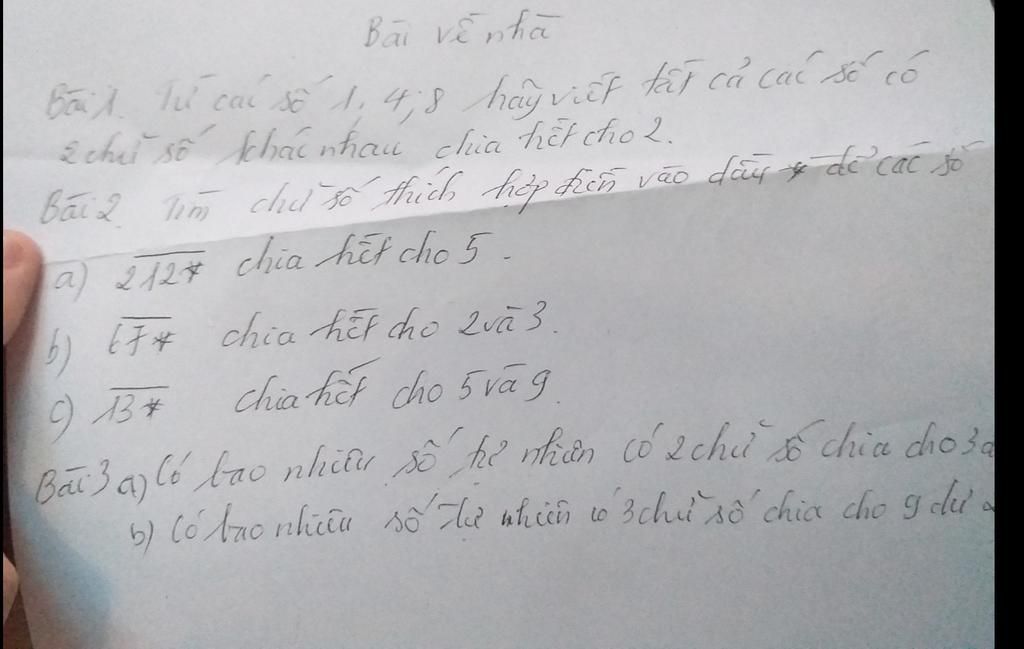 Bài về nhà
Bài 1. Từ các số 1, 4, 8 hãy viết tất cả các số có
2 chữ số khác nhau chia hết cho 2.
Bài 2. Tìm chữ số thích hợp điền vào dấu * để các số
a) 212* chia hết cho 5.
b) 67* chia hết cho 2 và 3.
c) 13* chia hết cho 5 và 9
Bài 3 a) Có bao nhiêu số tự nhiên có 2 chữ số chia cho 3 d
b) Có bao nhiêu số Tự nhiên có 3 chữ số chia cho 9 dư